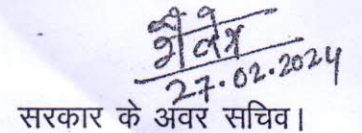 27.02.2024
सरकार के अवर सचिव।